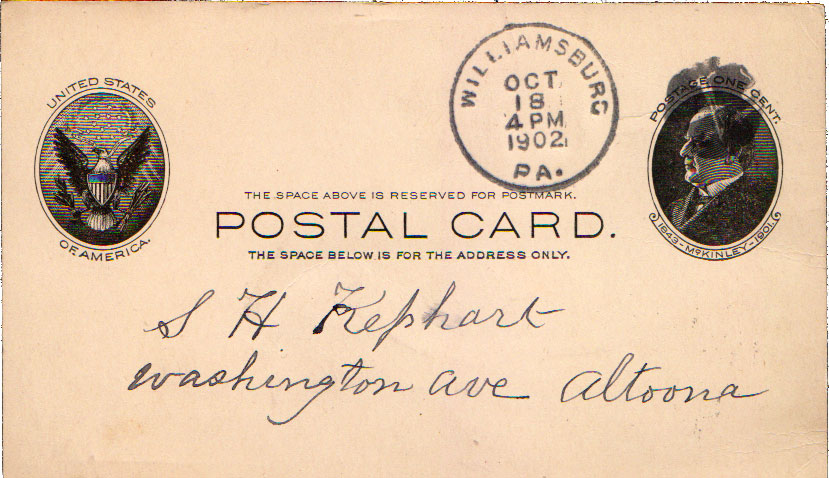 UNITED STATES
OF AMERICA.
WILLIAMSBURG
OCT
18
4 PM
1902
PA.
POSTAGE ONE CENT.
1843-McKINLEY-1901.
THE SPACE ABOVE IS RESERVED FOR POSTMARK.
POSTAL CARD.
THE SPACE BELOW IS FOR THE ADDRESS ONLY.
S H Kephart
Washington ave Altoona